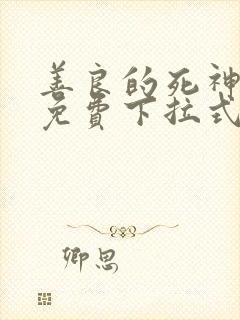 善良的死神
免费下拉式
卿思